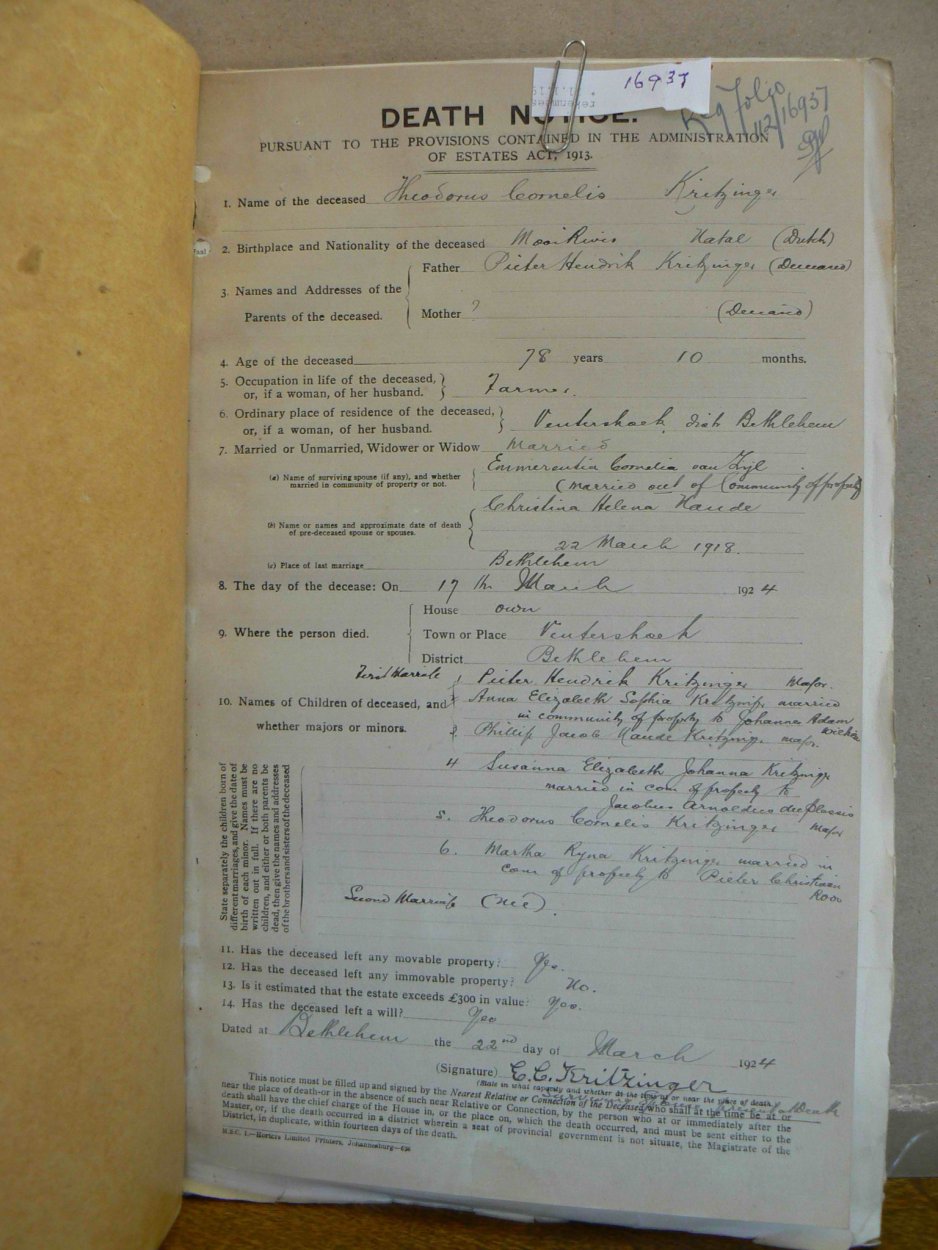 16937
Reg Folio
112/16937
DEATH NOTICE.
PURSUANT TO THE PROVISIONS CONTAINED IN THE ADMINISTRATION
OF ESTATES ACT, 1913.
1. Name of the deceased Theodorus Cornelis Kritzinger
2. Birthplace and Nationality of the deceased Mooi River Natal (Dutch)
3. Names and Addresses of the Parents of the deceased.
Father Pieter Hendrik Kritzinger (Deceased)
Mother ? (Deceased)
4. Age of the deceased 78 years 10 months.
5. Occupation in life of the deceased, or, if a woman, of her husband. } Farmer.
6. Ordinary place of residence of the deceased, or, if a woman, of her husband. } Ventershoek, dist Bethlehem
7. Married or Unmarried, Widower or Widow Married
(a) Name of surviving spouse (if any), and whether married in community of property or not.
Emmerentia Cornelia van Zyl
(married out of Community of property
(b) Name or names and approximate date of death of pre-deceased spouse or spouses.
Christina Helena Naude
22 March 1918.
(c) Place of last marriage Bethlehem
8. The day of the decease: On 17 th March 1924
9. Where the person died.
House own
Town or Place Ventershoek
District Bethlehem
10. Names of Children of deceased, and whether majors or minors.
First Marriage
1 Pieter Hendrik Kritzinger Major.
2 Anna Elizabeth Sophia Kritzinger married
in community of property to Johannes Adam
3. Phillip Jacob Naude Kritzinger major.
4 Susanna Elizabeth Johanna Kritzinger
married in com of property to
Jacobus Arnoldus du Plessis
5. Theodorus Cornelis Kritzinger Major
6. Martha Ryna Kritzinger married in
com of property to Pieter Christiaan
Roos
State separately the children born of
different marriages, and give the date of
birth of each minor. Names must be
written out in full. If there are no
children, and either or both parents be
dead, then give the names and addresses
of the brothers and sisters of the deceased
Second Marriage (nil).
11. Has the deceased left any movable property? Yes.
12. Has the deceased left any immovable property? No.
13. Is it estimated that the estate exceeds £300 in value? Yes.
14. Has the deceased left a will? Yes
Dated at Bethlehem the 22nd day of March 1924
(Signature) E.C. Kritzinger
(State in what capacity and whether at the time at or near the place of death.
This notice must be filled up and signed by the Nearest Relative or Connection of the Deceased who shall at the time be at or
near the place of death—or in the absence of such near Relative or Connection, by the person who at or immediately after the
death shall have the chief charge of the House in, or the place on, which the death occurred, and must be sent either to the
Master, or, if the death occurred in a district wherein a seat of provincial government is not situate, the Magistrate of the
District, in duplicate, within fourteen days of the death.
Horters Limited Printers, Johannesburg